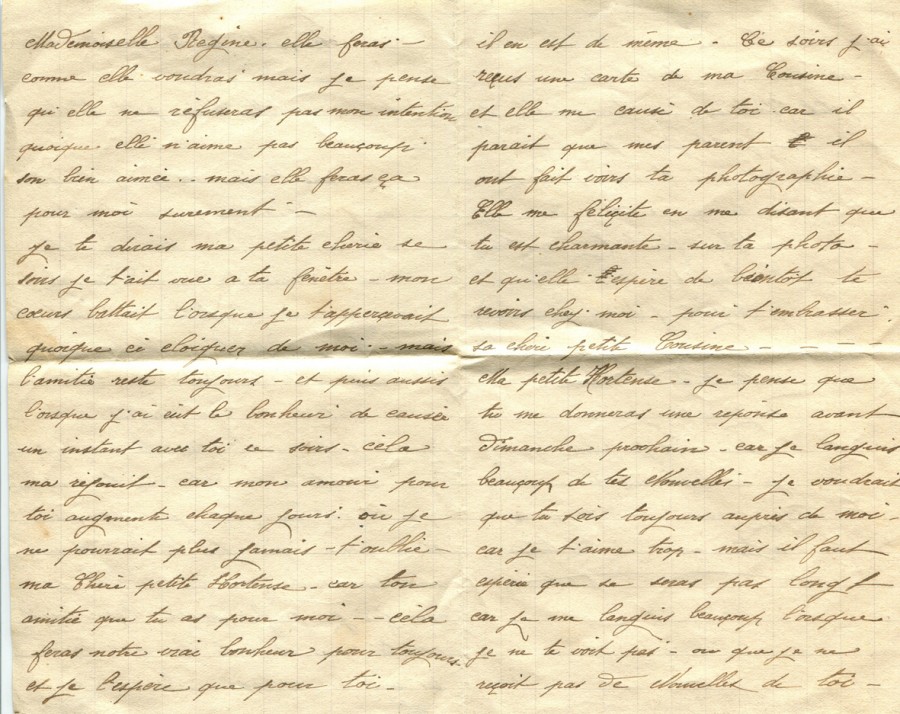 Mademoiselle Regine. elle feras –
comme elle voudras mais je pense
qu'elle ne réfuseras pas mon intention
quoique elle n'aime pas beauçoup
son bien aimée.. mais elle feras ça
pour moi surement –
je te dirais ma petite cherie se
soirs je t'ait vue a ta fenêtre – mon
cœurs battait l'orsque je t'apperçevait
quoique ci eloiquer de moi – mais
l'amitié reste toujours – et puis aussis
l'orsque j'ai eût le bonheur de causée
un instant avec toi ce soirs – cèla
ma rejouit – car mon amour pour
toi augmente chaque jours. où je
ne pourrait plus jamais – t'oublié –
ma Cheri petite Hortense – car ton
amitié que tu as pour moi – – cèla
feras notre vrai bonheur pour toujours.
et je l'espère que pour toi –
il en est de même – Ce soirs j'ai
reçus une carte de ma Cousine –
et elle me causé de toi car il
parait que mes parent il
ont fait voirs ta photographie –
Elle me féliçite en me disant que
tu est charmante – sur ta photo –
et qu'elle Espère de bientot te
revoirs chez moi – pour t'embrasser.
sa cheri petite Cousine – – – –
Ma petite Hortense – je pense que
tu me donneras une réponse avant
dimanche prochain – car je languis
beauçoup de tes Nouvelles – je voudrait
que tu sois toujours auprès de moi –
car je t'aime trop – mais il faut
espérée que se seras pas long
car je me languis beauçoup l'orsque
je ne te voit pas – ou que je ne
reçoit pas dé Nouvelles de toi –